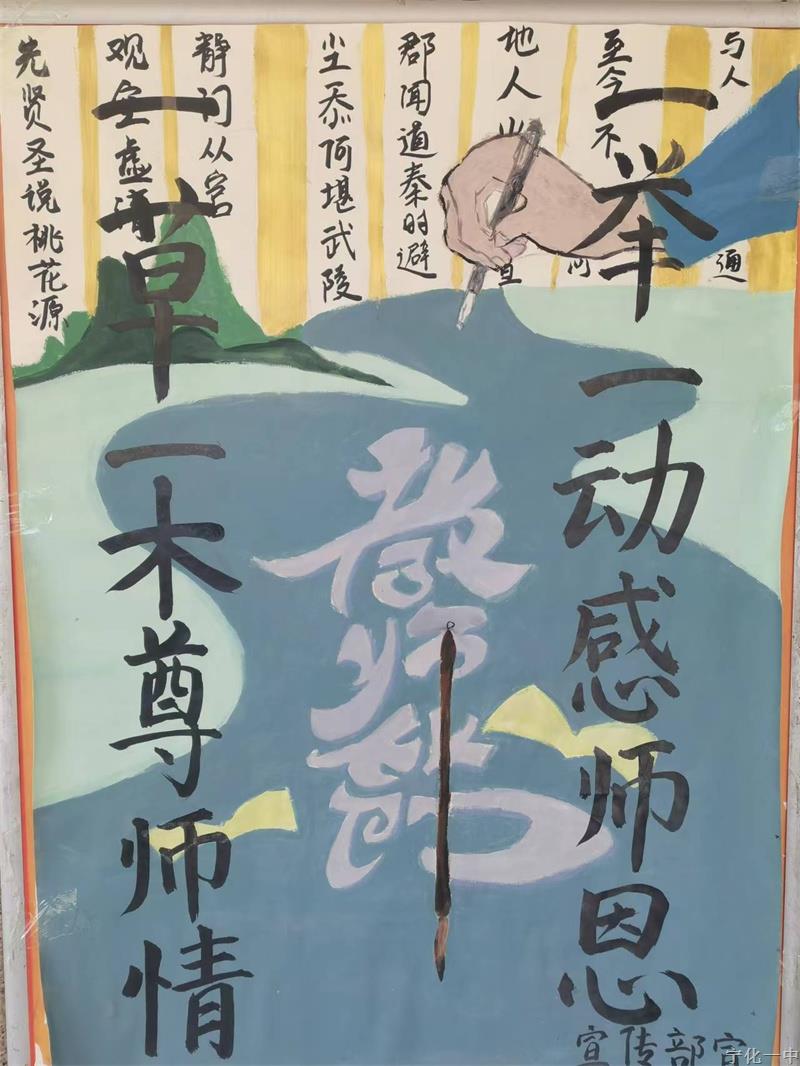 先贤圣说桃花源
观空虚清
静门从宫
尘忝阿堪武陵
郡闻道秦时避
地人
至今不
与人 通
一举一动感师恩
一草一木尊师情
教师节
宣传部宣
宁化一中